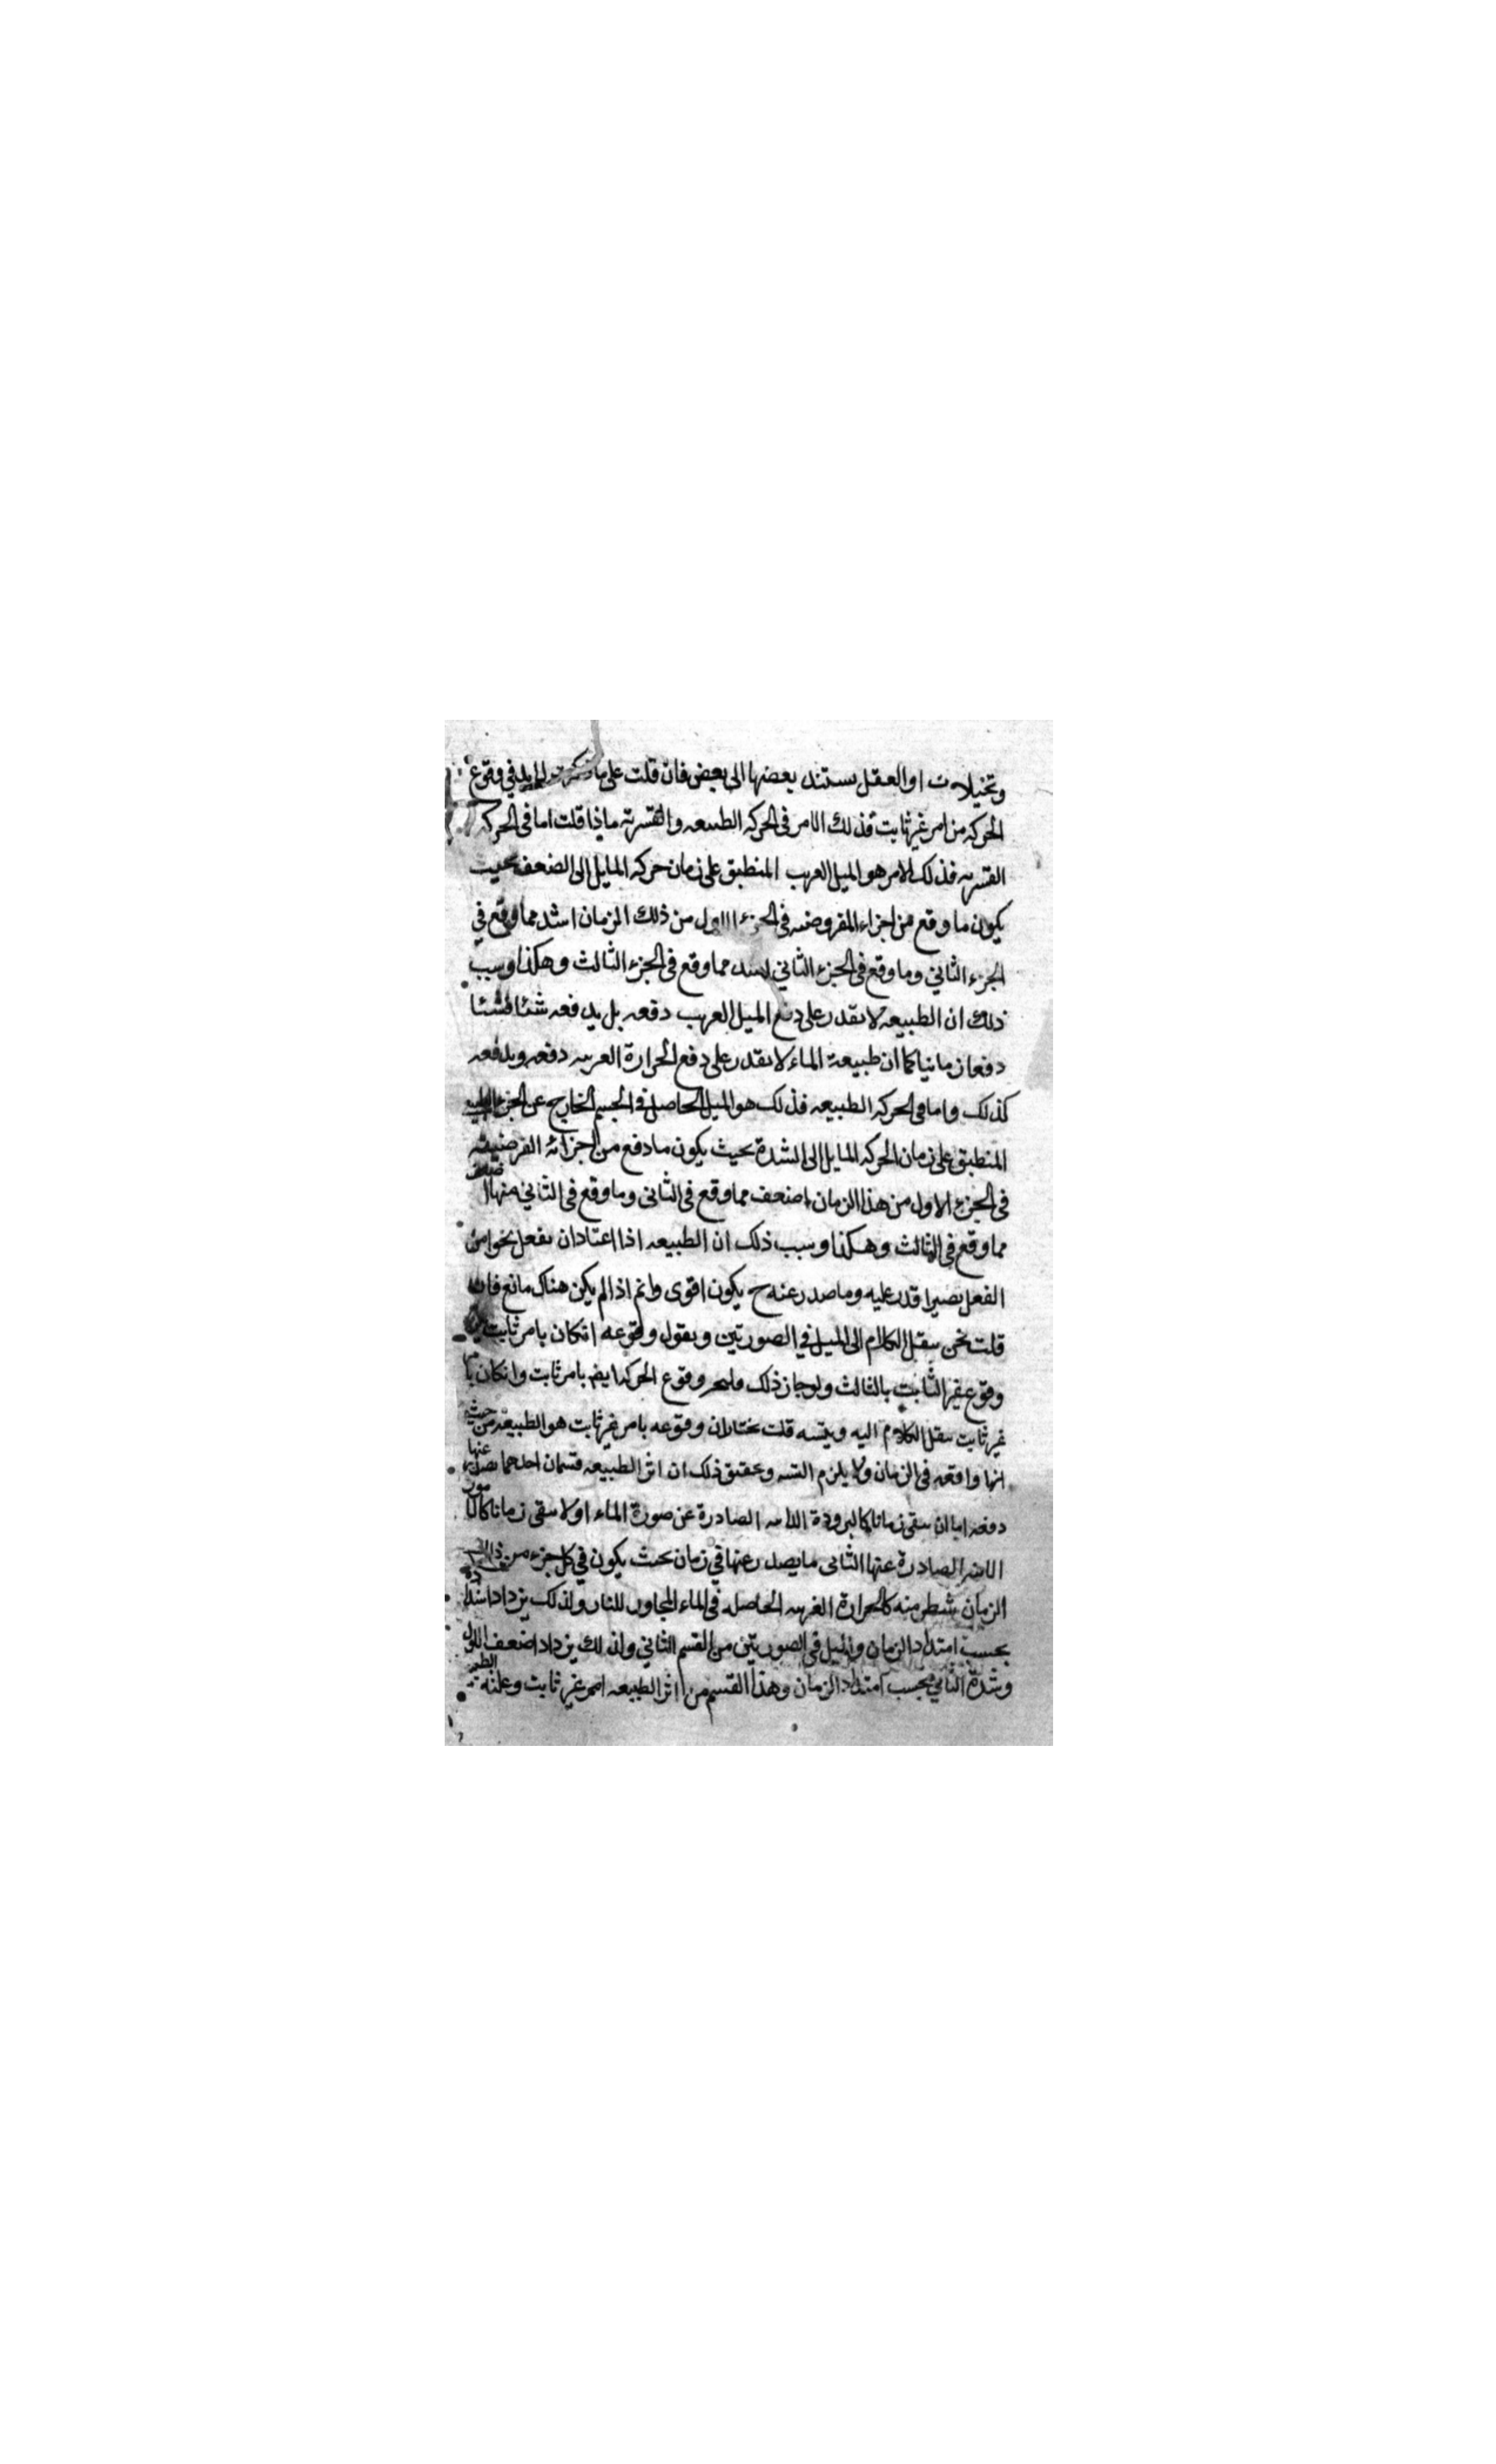 وتخيلات او العقل يستند بعضها الى بعض فان قلت على ما لا بد في وقوع
الحركه من امر غير ثابت فذلك الامر في الحركه الطبيعه والقسريه ماذا قلت اما في الحركه
القسريه فذلك الامر هو الميل الغريب المنطبق على زمان حركه المايل الى الضعف بحيث
يكون ما وقع من اجزاء المفروضه في الجزء الاول من ذلك الزمان اشد مما وقع في
الجزء الثاني وما وقع في الجزء الثاني اشد مما وقع في الجزء الثالث وهكذا وسبب
ذلك ان الطبيعه لا يقدر على دفع الميل الغريب دفعه بل يدفعه شئا فشئا
دفعا زمانيا كما ان طبيعة الماء لا يقدر على دفع الحرارة الغريبه دفعه ويدفعه
كذلك واما في الحركه الطبيعه فذلك هو الميل الحاصل في الجسم الخارج عن الحيز
المنطبق على زمان الحركه المايل الى الشدة بحيث يكون ما دفع من اجزائه الفرضيه
في الجزء الاول من هذا الزمان اضعف مما وقع في الثاني وما وقع في الثاني منها اضعف
مما وقع في الثالث وهكذا وسبب ذلك ان الطبيعه اذا اعتاد ان يفعل نحوا من
الفعل يصير اقدر عليه وما صدر عنه ح يكون اقوى واتم اذا لم يكن هناك مانع فان
قلت نحن ننقل الكلام الى الميل في الصورتين ونقول وقوعه انكان بامر ثابت
وقوع غير الثابت بالثالث ولو جاز ذلك فليجز وقوع الحركه ايضم بامر ثابت وانكان بامر
غير ثابت ننقل الكلام اليه ويتسه قلت نختار ان وقوعه بامر غير ثابت هو الطبيعه من حيث
انها واقعه في الزمان ولا يلزم التسه وتحقيق ذلك ان اثر الطبيعه قسمان احدهما يصدر عنها
دفعه اما ان يبقى زمانا كالبرودة الصادرة عن صورة الماء او لا يبقى زمانا كالصور
الصادرة عنها الثاني ما يصدر عنها في زمان بحيث يكون في كل جزء من ذلك
الزمان شطر منه كالحرارة الغريبه الحاصله في الماء المجاور للنار ولذلك يزداد شدة
بحسب امتداد الزمان والميل في الصورتين من القسم الثاني ولذلك يزداد اضعف الاول
وشدة الثاني بحسب امتداد الزمان وهذا القسم من اثر الطبيعه امر غير ثابت وعلته